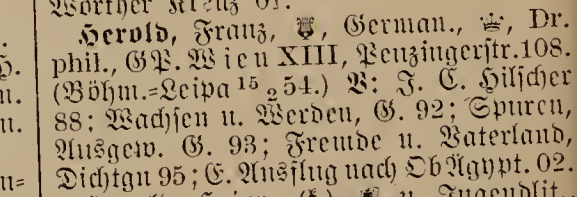 Wörther Kreuz 61.
Herold, Franz, German., Dr.
phil., GP. Wien XIII, Penzingerstr. 108.
(Böhm.=Leipa 15/2 54.) V: J. C. Hilscher
88; Wachsen u. Werden, G. 92; Spuren,
Ausgew. G. 93; Fremde u. Vaterland,
Dichtgn 95; E. Ausflug nach ObÄgypt. 02.
u. Jugendlit.